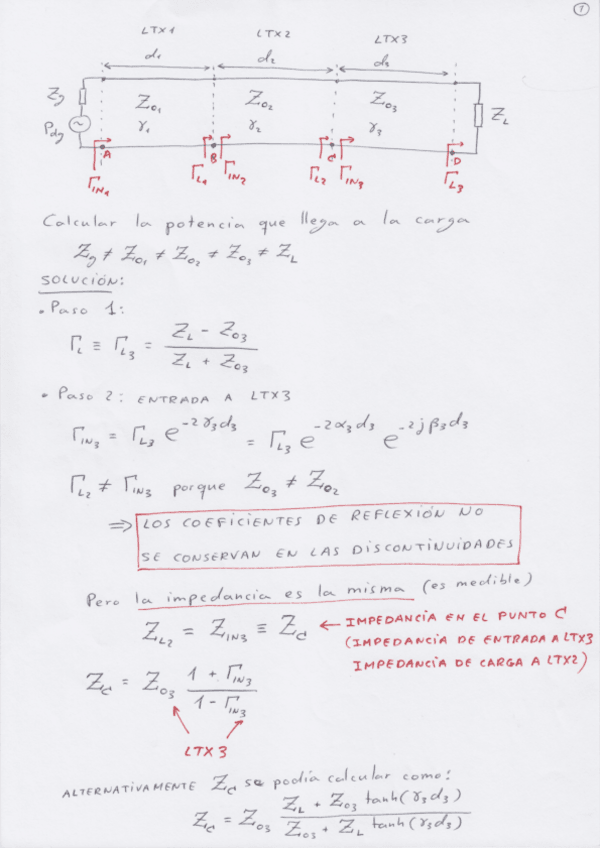 1
LTX1 LTX2 LTX3
d₁ d₂ d₃
Zg Z₀₁ Z₀₂ Z₀₃ Z_L
Pdg γ₁ γ₂ γ₃
A B C D
Γ_IN₁ Γ_L₁ Γ_IN₂ Γ_L₂ Γ_IN₃ Γ_L₃
Calcular la potencia que llega a la carga
Zg ≠ Z₀₁ ≠ Z₀₂ ≠ Z₀₃ ≠ Z_L
SOLUCIÓN:
• Paso 1:
Γ_L ≡ Γ_L₃ = (Z_L - Z₀₃) / (Z_L + Z₀₃)
• Paso 2: ENTRADA A LTX3
Γ_IN₃ = Γ_L₃ e^(-2γ₃d₃) = Γ_L₃ e^(-2α₃d₃) e^(-2jβ₃d₃)
Γ_L₂ ≠ Γ_IN₃ porque Z₀₃ ≠ Z₀₂
⇒ LOS COEFICIENTES DE REFLEXIÓN NO
SE CONSERVAN EN LAS DISCONTINUIDADES
Pero la impedancia es la misma (es medible)
Z_L₂ = Z_IN₃ ≡ Z_C ← IMPEDANCIA EN EL PUNTO C
(IMPEDANCIA DE ENTRADA A LTX3
IMPEDANCIA DE CARGA A LTX2)
Z_C = Z₀₃ (1 + Γ_IN₃) / (1 - Γ_IN₃)
LTX3
ALTERNATIVAMENTE Z_C se podía calcular como:
Z_C = Z₀₃ (Z_L + Z₀₃ tanh(γ₃d₃)) / (Z₀₃ + Z_L tanh(γ₃d₃))